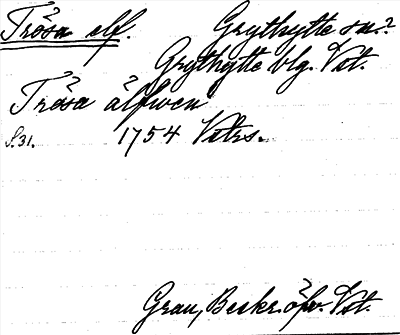 Trösa elf. Grythytte sn.?
Grythytte blg. Vst.
Trösa älfwen
S. 31. 1754 Vstrs.
Grau, Beskr. öfv. Vst.